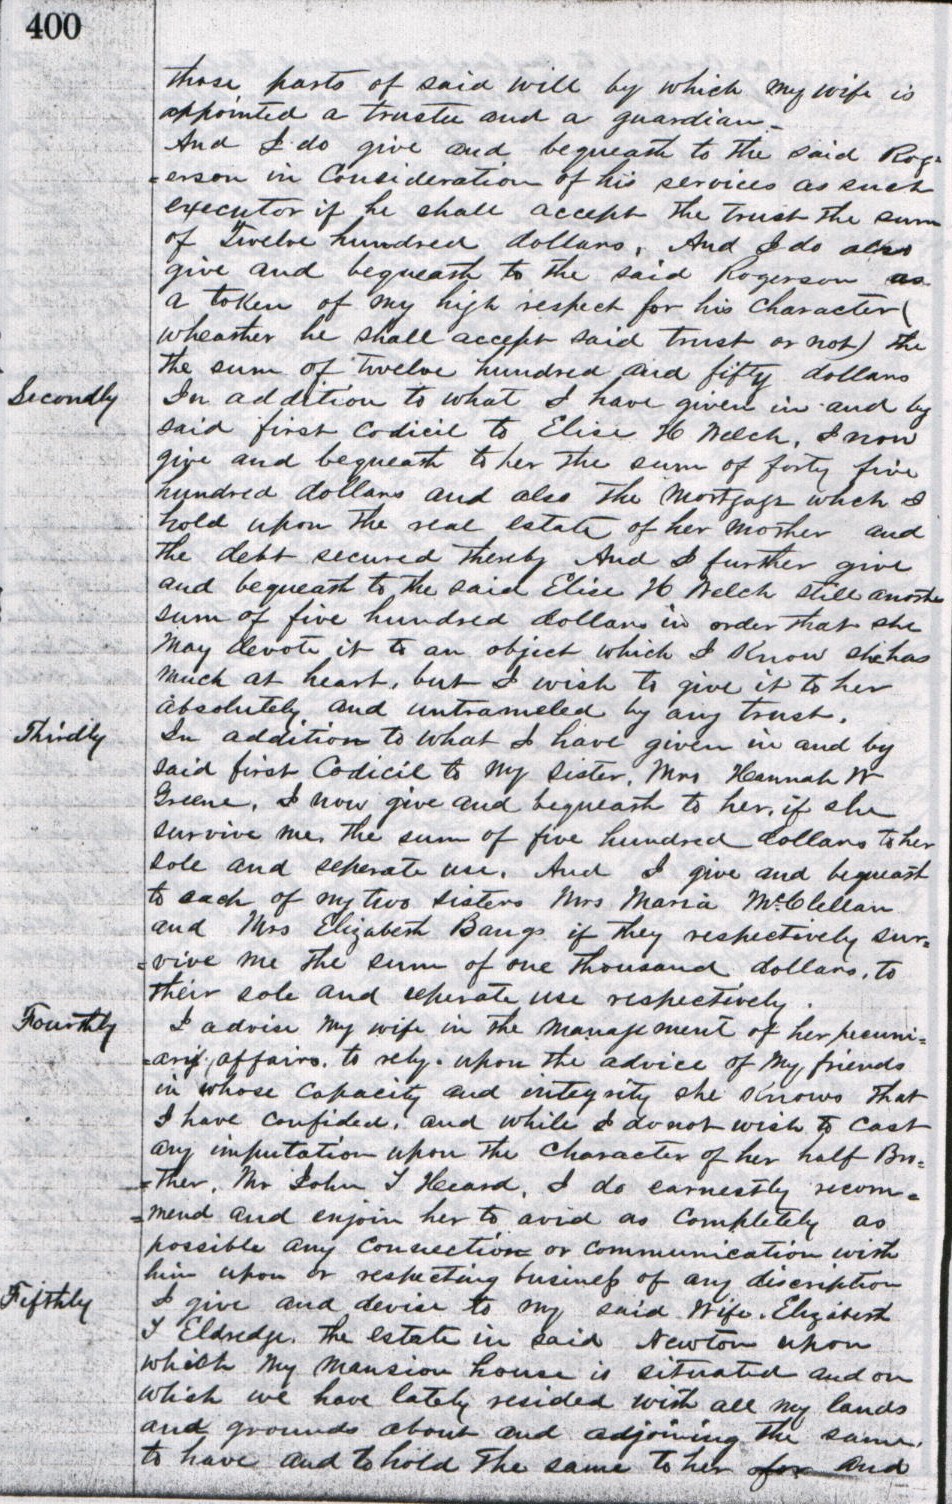 400
those parts of said will by which my wife is
appointed a trustee and a guardian -
And I do give and bequeath to the said Rog-
=erson in Consideration of his services as such
executor if he shall accept the trust the sum
of Twelve hundred dollars, And I do also
give and bequeath to the said Rogerson as
a token of my high respect for his Character (
wheather he shall accept said trust or not) the
the sum of twelve hundred and fifty dollars
Secondly In addition to what I have given in and by
said first codicil to Elise H Welch, I now
give and bequeath to her the sum of forty five
hundred dollars and also the Mortgage which I
hold upon the real estate of her Mother and
the debt secured thereby And I further give
and bequeath to the said Elise H Welch still another
sum of five hundred dollars in order that she
may devote it to an object which I Know she has
much at heart, but I wish to give it to her
absolutely and untrameled by any trust.
Thirdly In addition to what I have given in and by
said first Codicil to my sister, Mrs Hannah W
Greene, I now give and bequeath to her, if she
survive me, the sum of five hundred dollars to her
sole and seperate use. And I give and bequeath
to each of my two sisters Mrs Maria McClellan
and Mrs Elizabeth Bangs if they respectively sur=
=vive me the sum of one thousand dollars, to
their sole and seperate use respectively.
Fourthly I advise my wife in the management of her pecuni=
=ary affairs, to rely upon the advice of my friends
in whose capacity and integrity she Knows that
I have confided, and while I do not wish to cast
any imputation upon the Character of her half Bro=
=ther, Mr John T Heard, I do earnestly recom=
=mend and enjoin her to avoid as completely as
possible any connection or communication with
him upon or respecting business of any discription
Fifthly I give and devise to my said Wife, Elizabeth
T Eldredge, the estate in said Newton upon
which my mansion house is situated and on
which we have lately resided with all my lands
and grounds about and adjoining the same,
to have and to hold the same to her for and